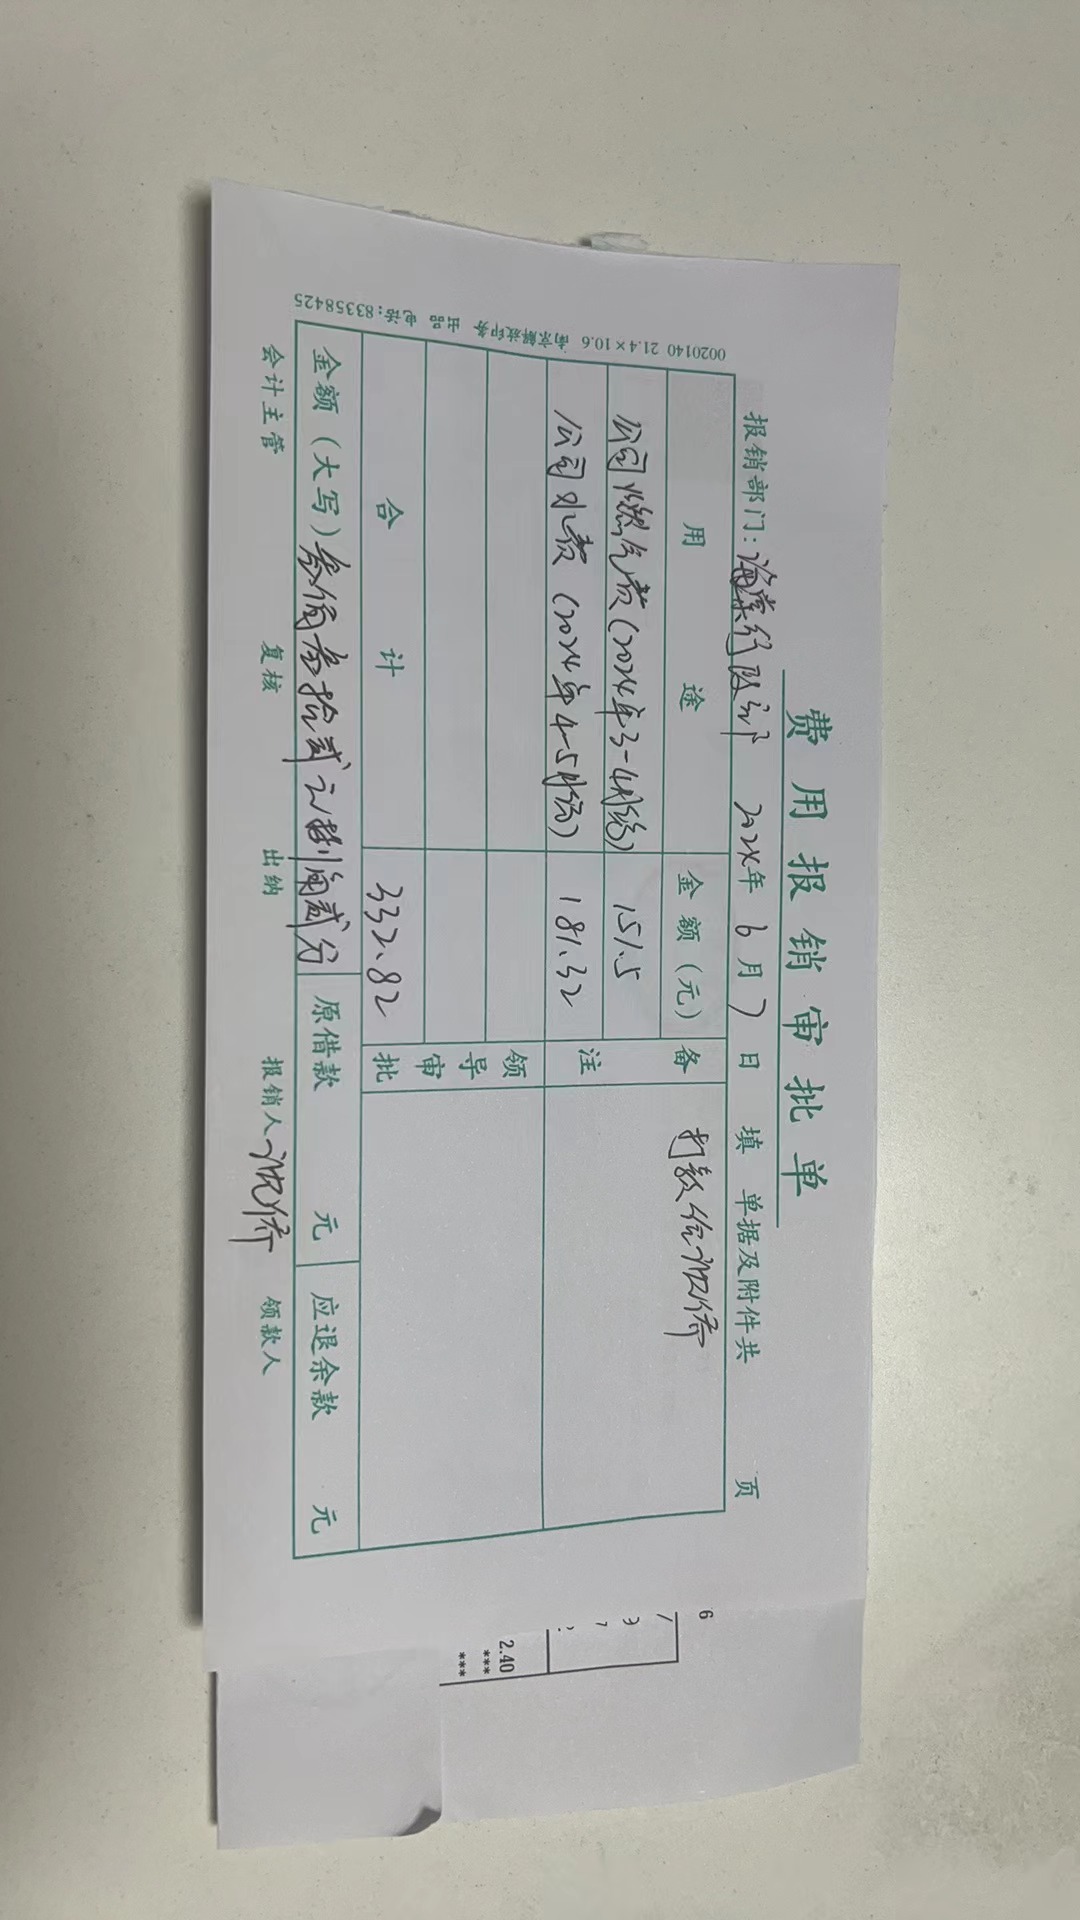 费用报销审批单
报销部门：海棠行政部 2024年 6月 7日 填 单据及附件共 页
用 途 金额（元） 备注
公司燃气费（2024年3-4月份） 151.5 打款给
公司水费（2024年4-5月份） 181.32
领导审批
合 计 332.82
金额（大写）叁佰叁拾贰元捌角贰分 原借款 元 应退余款 元
会计主管 复核 出纳 报销人 领款人
0020140 21.4×10.6 南京解放印务 出品 电话:83358425
6
2.40
***
***